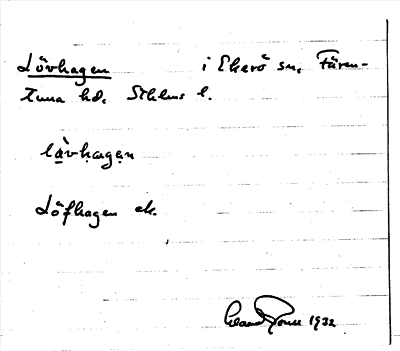 Lövhagen i Ekerö sn, Fären-
tuna hd. Sthlms l.
lövhagen
Löfhagen ek.
1932